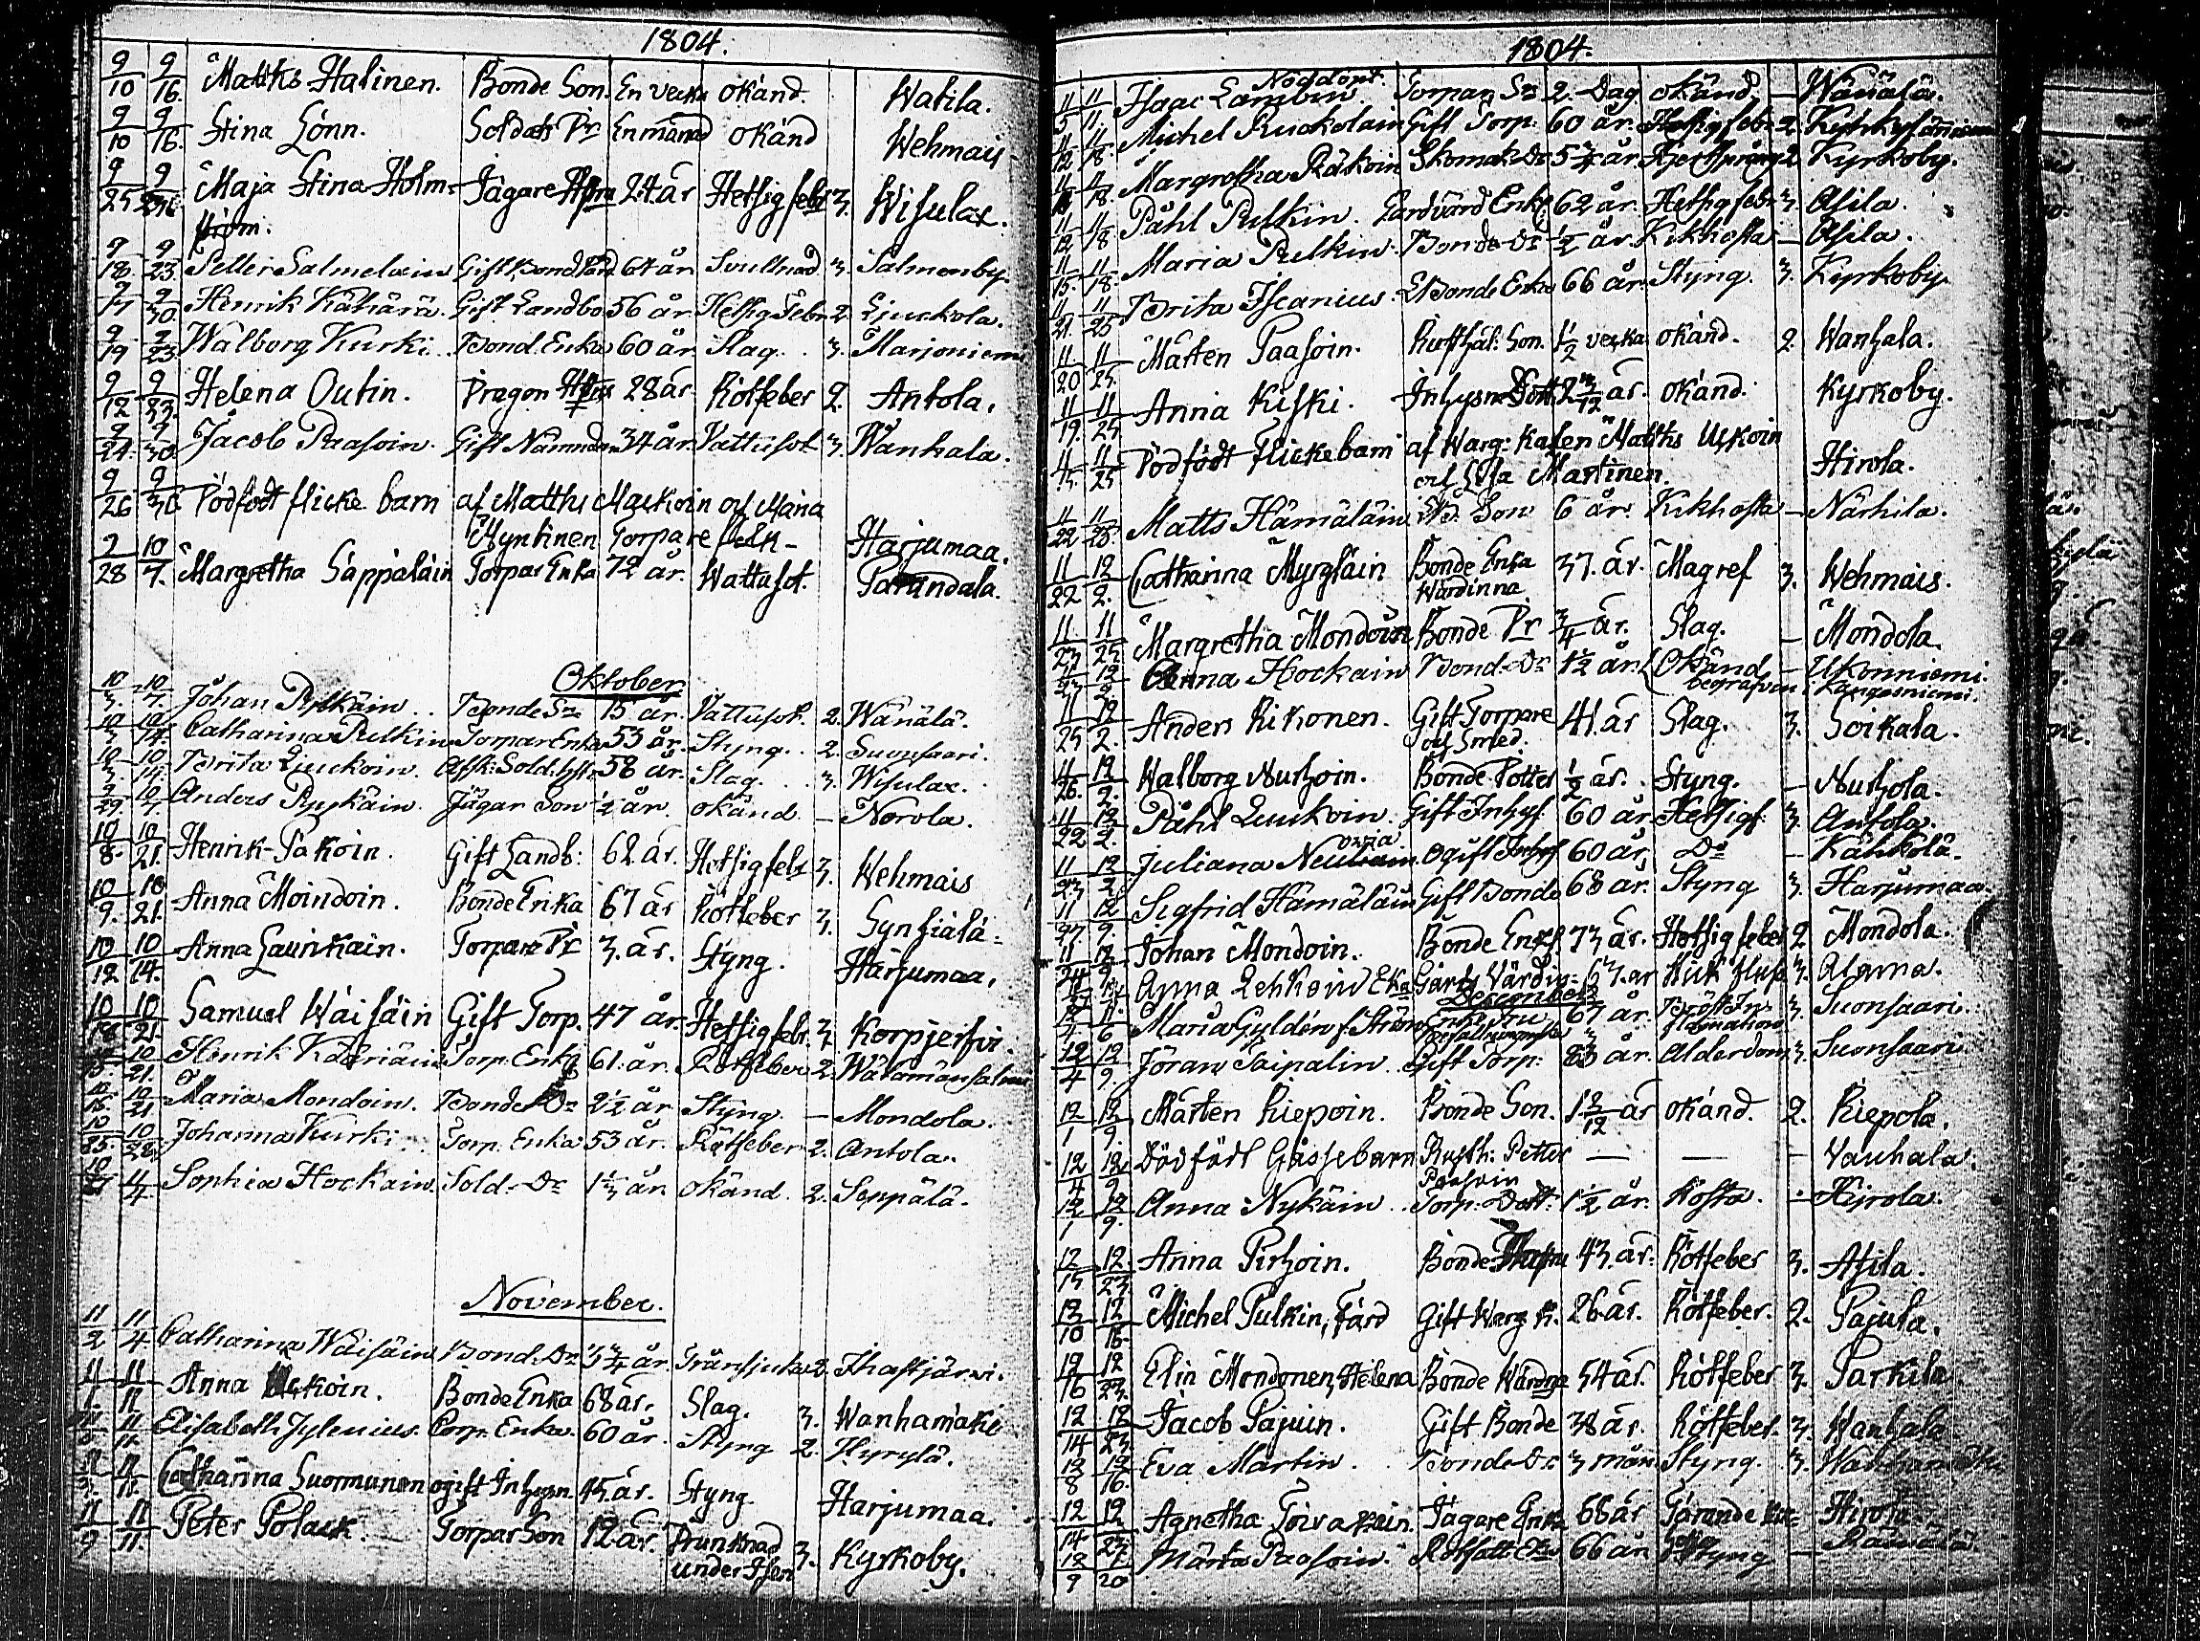 1804.
9/10 9/16. Matths Halinen. Bonde Son. En vecka okänd. Watila.
9/10 9/16. Stina Lönn. Soldats Pr En månad okänd Wehmais
9/25 Maja Stina Holm- Jägare 24 år Hetsig feber 3. Wisulax.
ström.
9/18. 9/23. Petter Salmelain Gift 64 år 3. Salmenby.
9/30. Henrik Kähärä. Gift Landbo 56 år Hetsig Feber 2 Ljuckola.
9/19 9/23. Walborg Kurki. Bond. Enka 60 år Slag. 3. Marjoniemi
9/12 9/23. Helena Outin. Dragon 28 år Rötfeber 2. Antola.
9/21. 9/30. Jacob Paasoin. Gift Nämndem 34 år Vattusot 3. Wanhala.
9/26 9/30 Dödfödt flicke barn af Matths Mackoin och Maria
Myntinen Torpare folk- Harjumaa.
9/28 10/7. Margretha Sappalain Torpar Enka 72 år. Wattusot. Parandala.
Oktober
10/3. 10/7. Johan Pylkäin. Bonde Sn 15 år. Vattusot. 2. Wänälä.
10/3 10/14. Catharina Pulkin Torpar Enka 53 år. Styng. 2. Suonsaari.
10/3. 10/14. Brita Luckoin. Afsk. Sold. 58 år. Slag. 3. Wisulax.
9/29. 10/7. Anders Pyykäin. Jägar Son ½ år. okänd. — Norola.
10/8. 10/21. Henrik Pakoin. Gift Landb: 62 år. Hetsig feb 3. Wehmais
10/9. 10/21. Anna Moindoin. Bonde Enka 67 år Rötfeber 3. Synsiälä
10/12 10/14. Anna Laurikain. Torpare Pr 3. år. Styng. Harjumaa.
10/18. 10/21. Samuel Wäisäin Gift Torp. 47 år. Hetsig febr. 3. Korpjerfvi.
10/15. 10/21. Henrik Kääriäin Torp. Enkl 61. år. Rötfeber 2. Wätämänsalmi
10/18. 10/21 Maria Mondoin. Bonde Dr 2½ år Styng. — Mondola.
10/25. 10/28. Johanna Kurki. Torp. Enka 53 år. Rötfeber 2. Antola.
11/4 Sophia Hockain. Sold. Dr 1⅓ år okänd. 2. Seppälä.
November.
11/2 11/4 Catharina Wäisäin Bond. Dr 3¾ år. Tränsjuka 2. Ihastjärvi.
11/1. 11/11 Anna Uckoin. Bonde Enka 68 år. Slag. 3. Wanhamäki
11/11. Elisabeth Jylenius. Corp. Enka. 60 år. Styng 2. Hyrylä.
11/3. 11/11. Catharina Suormunen ogift Inhysn. 45 år. Styng. Harjumaa.
11/9 11/11. Peter Polack. Torpar Son 12 år. Drunknad 3. Kyrkoby.
under Isen
1804.
Nöddöpt.
11/5 11/11. Isaac Lambin Torpan Sn 2. Dag okänd — Wänälä.
11/12 11/18. Michel Ruckolain Gift Torp. 60 år. Hetsig febr 2.
11/18. Margretha Räkoin Skomak. Dr 5¾ år. 2 Kyrkoby.
11/12 11/18 Påhl Pulkin. Gardvärd Enkl 62 år. Hetsig febr 3. Asila.
11/15. 11/18. Maria Pulkin. Bonde Dr ½ år. Kikhosta — Asila.
11/21. 11/25 Brita Iscanius. Bonde Enka 66 år. Styng. 3. Kyrkoby
11/20 11/25. Mårten Paasoin. Rusthål. Son. 1½ vecka okänd. 2. Wanhala.
11/19. 11/25 Anna Kiski. Inhysn Dott 2 3/12 år. okänd. Kyrkoby.
11/25 Dödfödt Flickebarn af Warg: Kalen Matths Uckoin
och Lisa Martinen. Hirola.
11/22 11/25. Matts Hämäläin Bd. Son 6 år. Kikhosta — Närhilä.
11/22 12/2. Catharina Myrgläin Bonde Enka 37. år. Magref 3. Wehmais.
Wärdinna
11/23 11/25. Margretha Mondoin Bonde Pr ¾ år. Slag. — Mondola.
12/2 Anna Hockain Bond. Dr 1½ år. Okänd — Ukonniemi.
begrafven i Kangasniemi.
11/25 12/2. Anders Rikonen. Gift Torpare 41 år Slag. 3. Soikala.
och Smed.
11/26. 12/2. Walborg Nuthoin. Bonde Dotter ½ år. Styng. — Nuthola.
11/22 12/2. Påhl Luukoin. Gift Inhys. 60 år Hetsigf. 3. Antola.
11/23 12/2. Juliana Ogift Inhys 60 år, Do — Kähkölä.
11/27. 12/9. Sigfrid Hämäläin Gift Bonde 68 år. Styng 3. Harjumaa.
11/24 12/9. Johan Mondoin. Bonde Enkl 73 år. Hetsig feber 2 Mondola.
Anna Lehkoin Enka Gårds Värdin 63. år 3. Alama.
December
Maria Gyldén f. Ström Enke Fru 67 år. Bröst In- 3. Suonsaari.
flamation
12/4 12/9. Jöran Taipalin. Gift Torp: 83 år. Ålderdom 3. Suonsaari
12/1 12/9. Mårten Riepoin. Bonde Son. 1 2/12 år okänd. 2. Riepola.
12/4 12/9 Dödfödt Gåssebarn Rusth. Petter — — — Vanhala.
Paasoin
12/1 12/9. Anna Nykäin. Torp. Dott. 1½ år. Hosta. — Hirola.
12/15 12/23 Anna Pirhoin. Bonde 43. år. Rötfeber 3. Asila.
12/10 12/16. Michel Pulkin, Färd Gift Warg K. 26 år. Rötfeber. 2. Pajula.
12/16 12/23. Elin Mondonen, Helena Bonde Wärdna 54 år. Rötfeber 3. Parkila.
12/14 12/23 Jacob Pajuin. Gift Bonde 38 år. Rötfeber. 3. Wanhala
12/8 12/16. Eva Martin. Bonde Dr 3 mån Styng. 3. Wanhamäki
12/14 12/23 Agnetha Toivakain. Jägare Enka 68 år Tärande Hirola.
12/9 Märta Paasoin. Enka 66 år Styng —